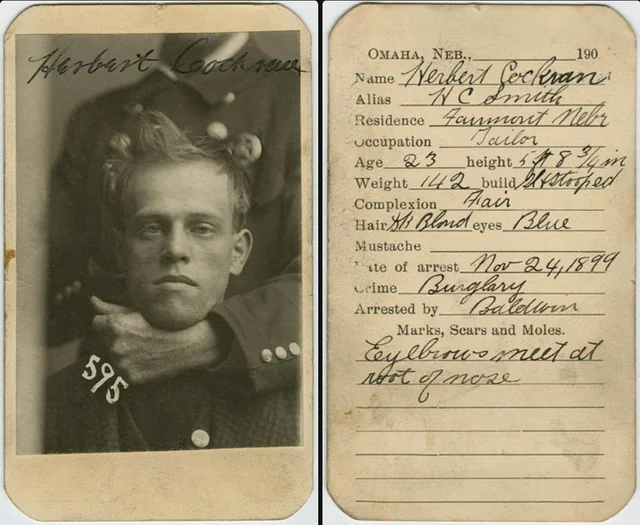 Herbert Cockran
595
OMAHA, NEB., 190
Name Herbert Cockran
Alias H C Smith
Residence Fairmont Nebr
Occupation Tailor
Age 23 height 5 ft 8 3/4 in
Weight 142 build Sl stooped
Complexion Fair
Hair Dk Blond eyes Blue
Mustache
Date of arrest Nov 24, 1899
Crime Burglary
Arrested by Baldwin
Marks, Scars and Moles.
Eyebrows meet at
root of nose